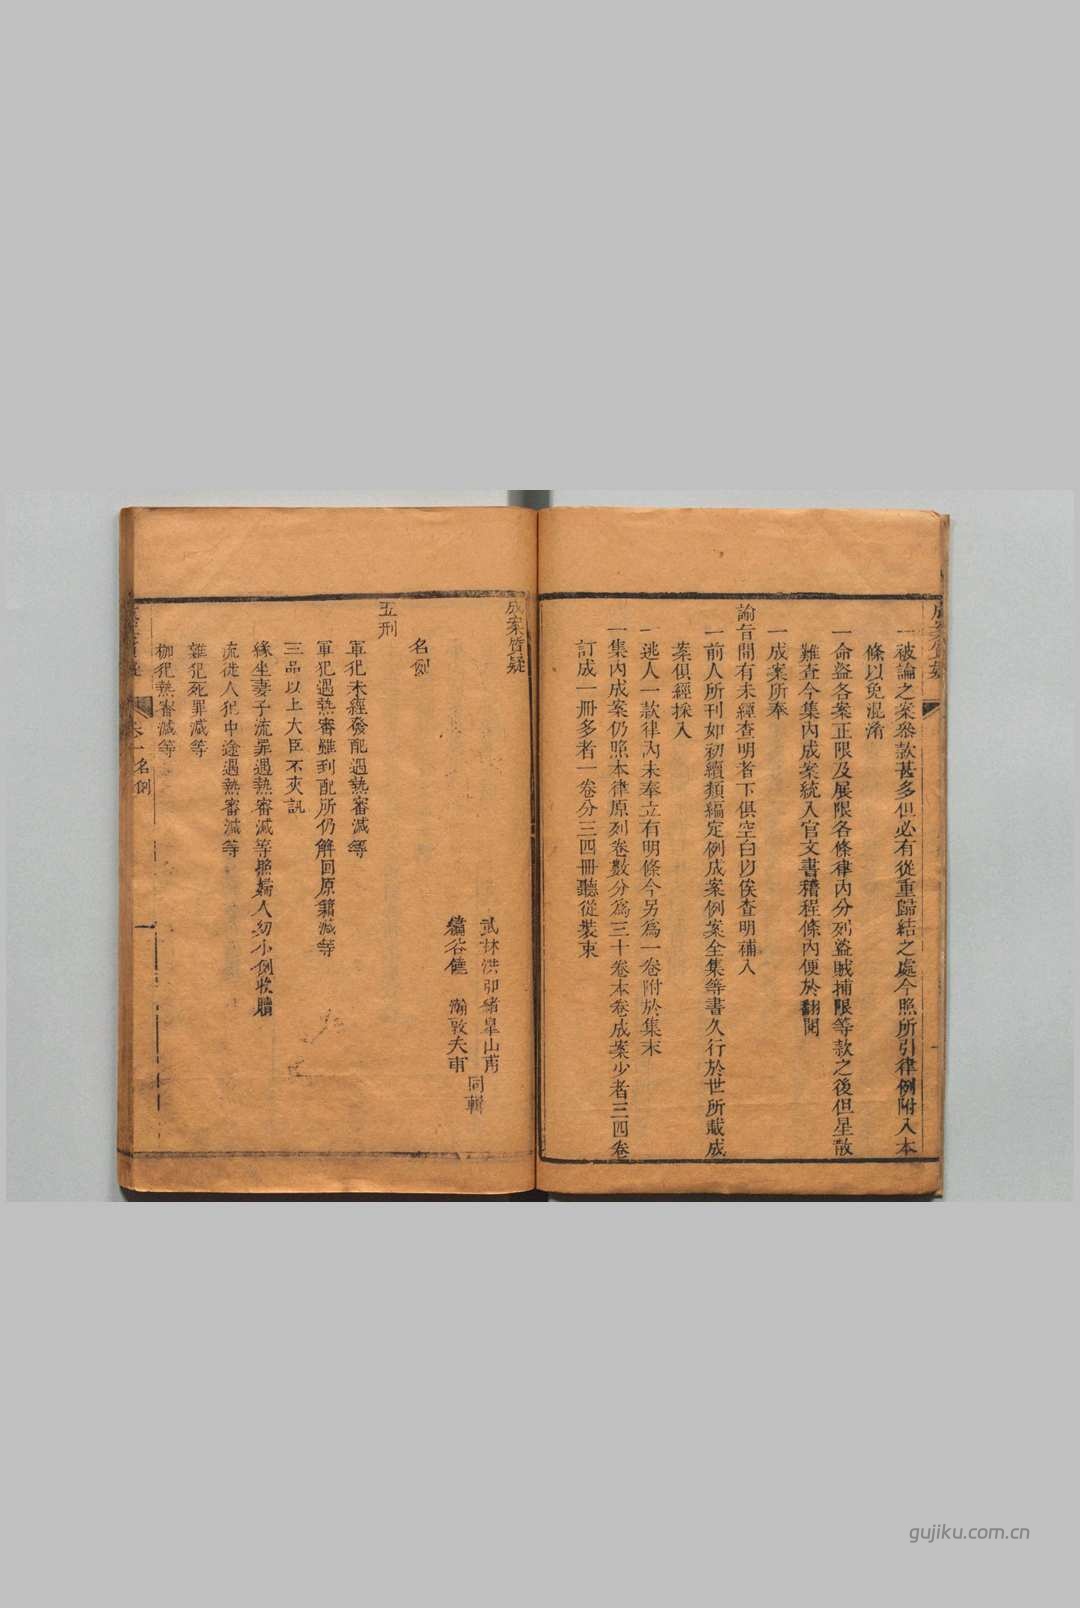 一被論之案叅款甚多但必有從重歸結之處今照所引律例附入本
條以免混淆
一命盜各案正限及展限各條律內分列盜賊捕限等款之後但星散
難查今集內成案統入官文書稽程條內便於翻閱
一成案所奉
諭旨間有未經查明者下俱空白以俟查明補入
一前人所刊如初續類編定例成案例案全集等書久行於世所載成
案俱經採入
一逃人一款律內未奉立有明條今另為一卷附於集末
一集內成案仍照本律原列卷數分為三十卷本卷成案少者三四卷
訂成一冊多者一卷分三四冊聽從裝束
成案質疑
武林洪卲緒皐山甫
繡谷 瀚敦夫甫
同輯
名例
五刑
軍犯未經發配遇熱審減等
軍犯遇熱審雖到配所仍解回原籍減等
三品以上大臣不夾訊
緣坐妻子流罪遇熱審減等照婦人幼小例收贖
流徒人犯中途遇熱審減等
雜犯死罪減等
枷犯熱審減等
卷一名例
一
gujiku.com.cn